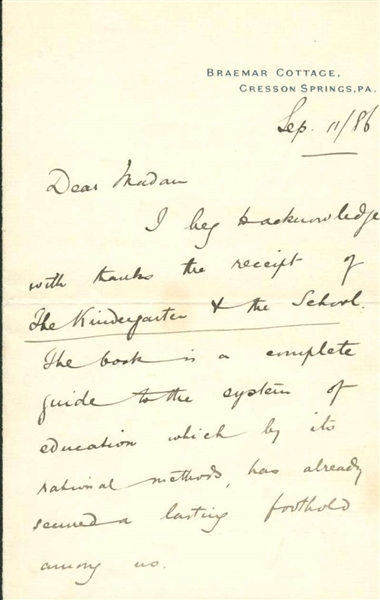 BRAEMAR COTTAGE,
CRESSON SPRINGS, PA.
Sep. 11/86
Dear Madam
I beg to acknowledge
with thanks the receipt of
The Kindergarten & the School.
The book is a complete
guide to the system of
education which by its
rational methods, has already
secured a lasting foothold
among us.